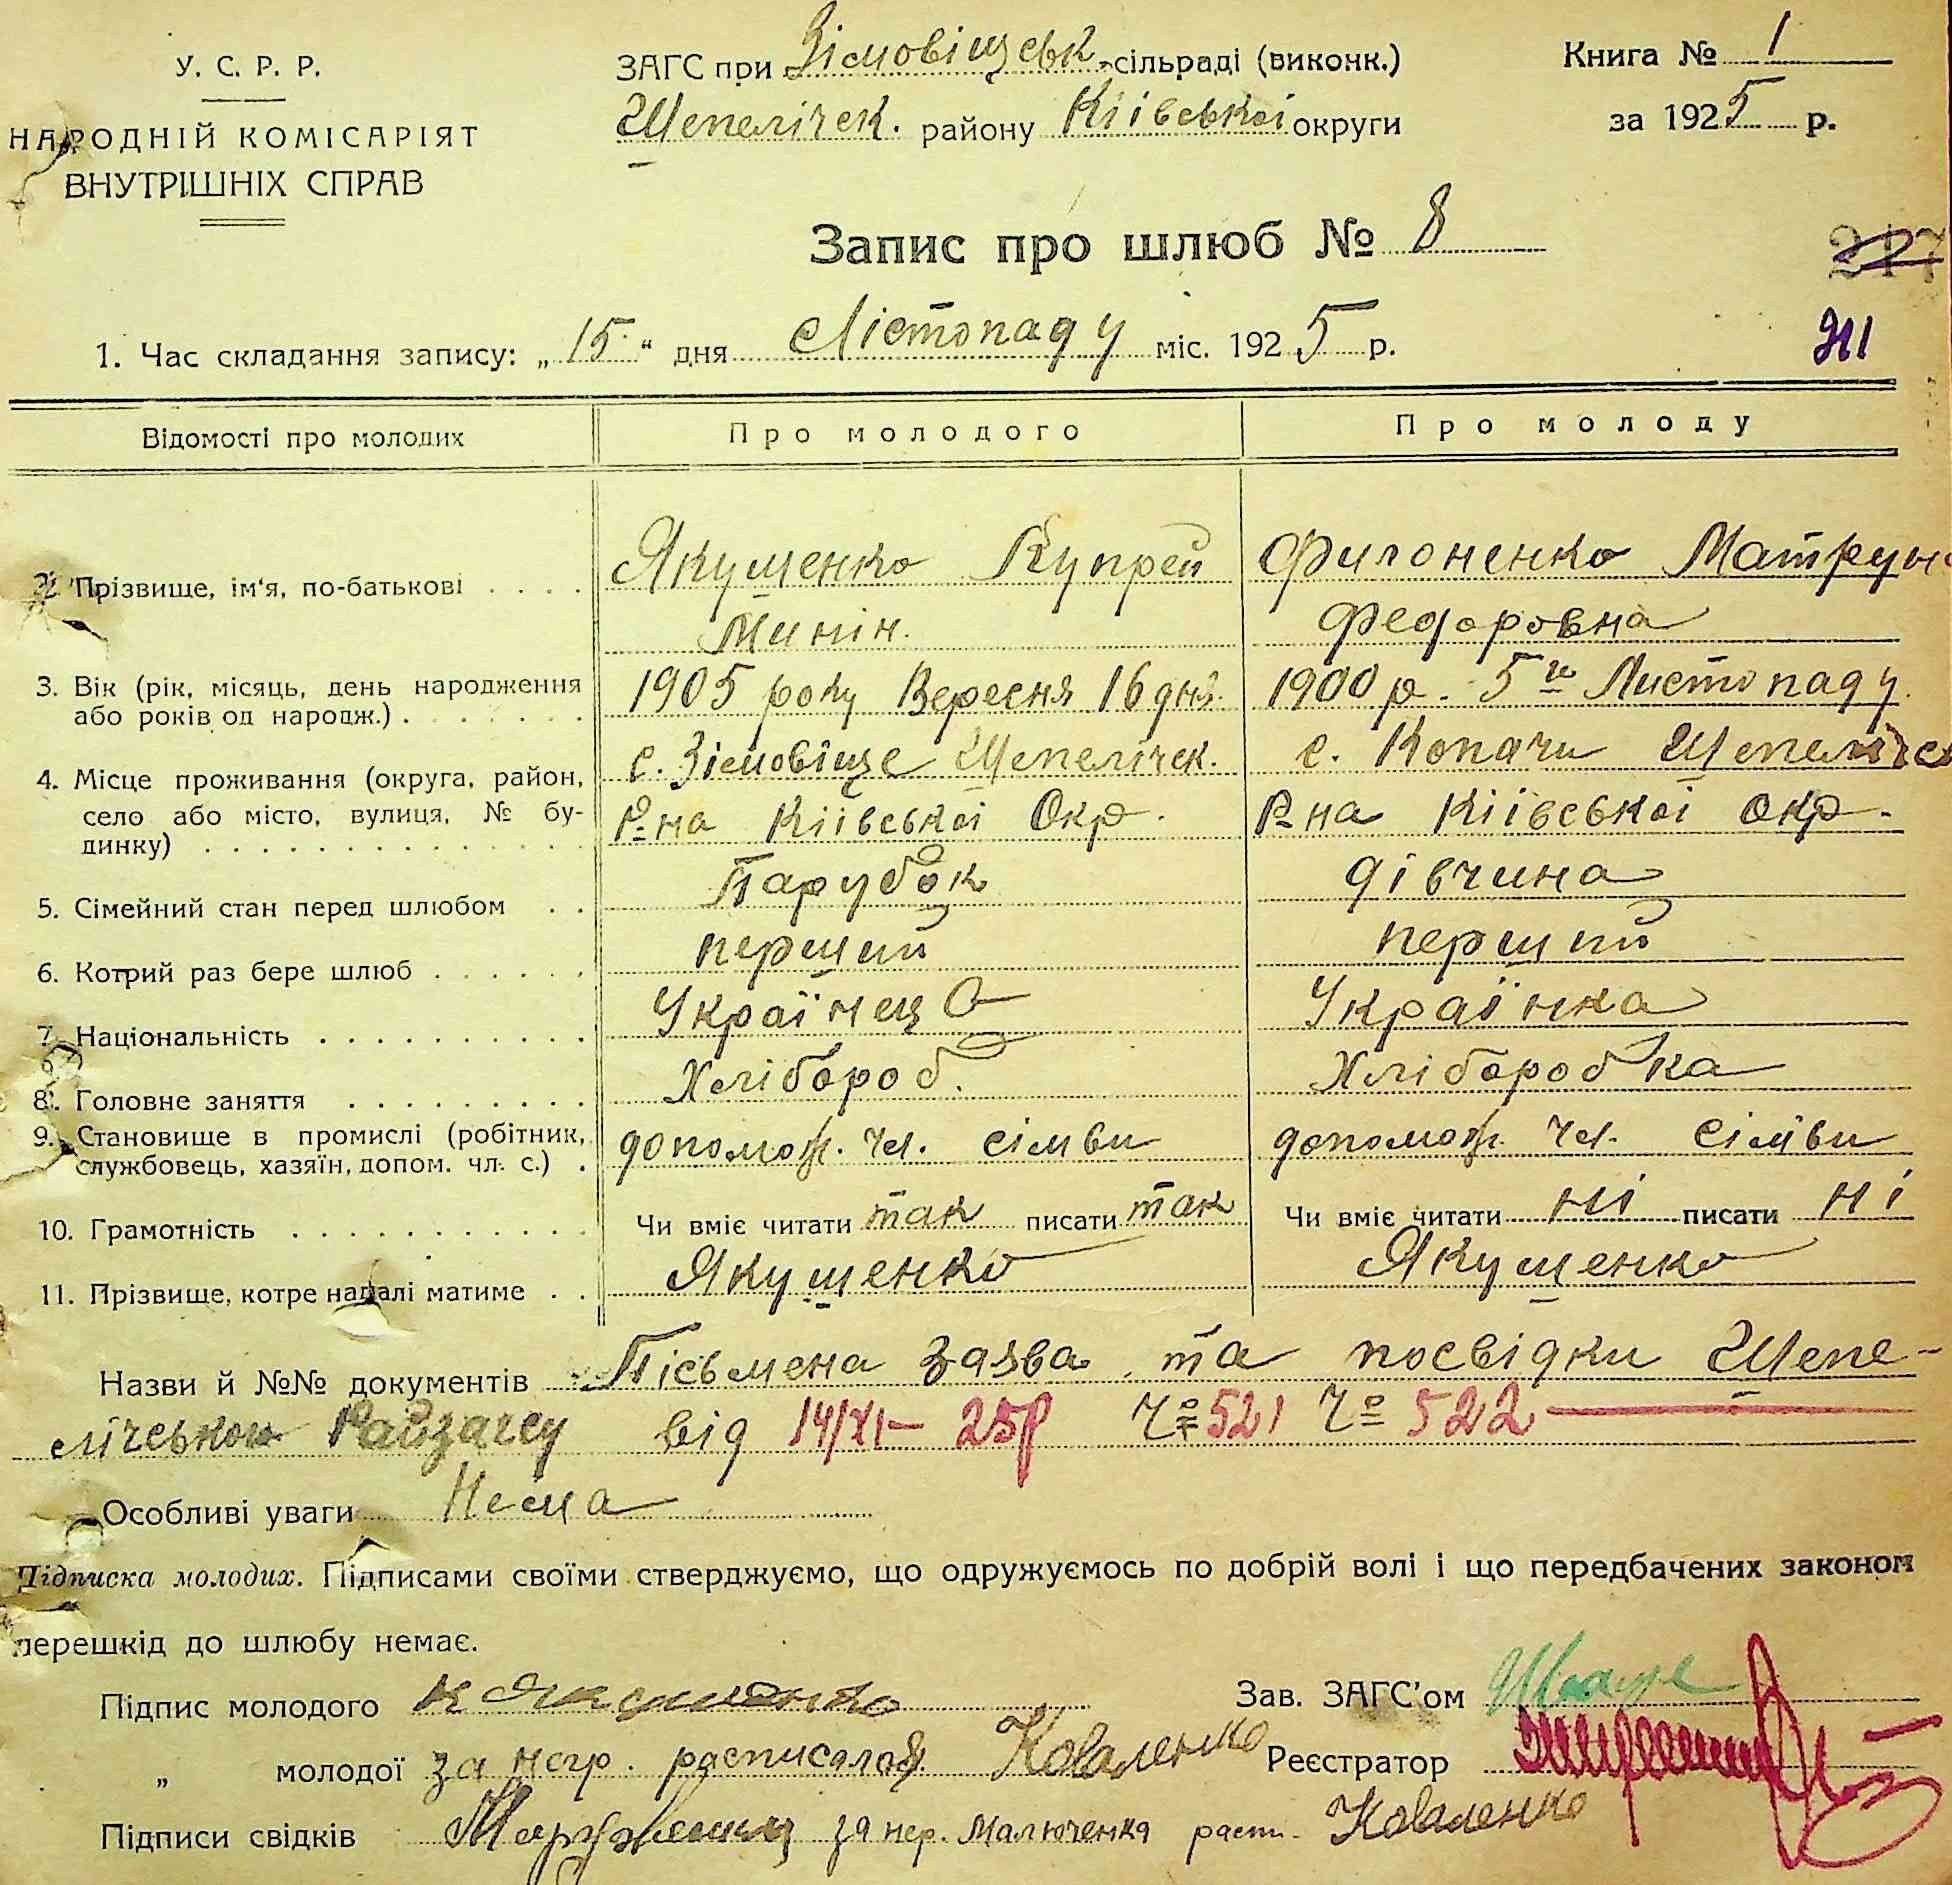 У. С. Р. Р.
НАРОДНІЙ КОМІСАРІЯТ
ВНУТРІШНІХ СПРАВ
ЗАГС при Зімовіщеськ. сільраді (виконк.)
Шепеліческ. району Кіівськоі округи
Книга № 1
за 1925 р.
Запис про шлюб № 8
217
211
1. Час складання запису: „15“ дня Лістопаду міс. 1925 р.
Відомості про молодих Про молодого Про молоду
2. Прізвище, ім‘я, по-батькові . . . . Якушенко Купрей Филоненко Матрун
Минін. Федоровна
3. Вік (рік, місяць, день народження 1905 року Вересня 16 дня. 1900 р. 5го Листопаду.
або років од народж.) . . . . . . .
4. Місце проживання (округа, район, с. Зімовіще Шепелічек. с. Копачи Шепелічек
село або місто, вулиця, № бу- Р-на Кіівськоі Окр. Р-на Кіівськоі Окр.
динку) . . . . . . . . . . . . . . .
5. Сімейний стан перед шлюбом . . Парубок дівчина
6. Котрий раз бере шлюб . . . . . . перший перший
7. Національність . . . . . . . . . . Українець Українка
8. Головне заняття . . . . . . . . . Хлібороб. Хліборобка
9. Становище в промислі (робітник, допомож. чл. сімьи допомож. чл. сімьи
службовець, хазяїн, допом. чл. с.) .
10. Грамотність . . . . . . . . . . . Чи вміє читати так писати так Чи вміє читати ні писати ні
11. Прізвище, котре надалі матиме . . Якушенко Якушенко
Назви й №№ документів Пісьмена заява та посвідки Шепе-
лічського Райзагсу від 14/XI- 25р Чо 521 Чо 522
Особливі уваги Нема
Підписка молодих. Підписами своїми стверджуємо, що одружуємось по добрій волі і що передбачених законом
перешкід до шлюбу немає.
Підпис молодого К Якушенко Зав. ЗАГС’ом
„ молодої за негр. расписался Коваленко Реєстратор
Підписи свідків за нер. Малюченка расп. Коваленко